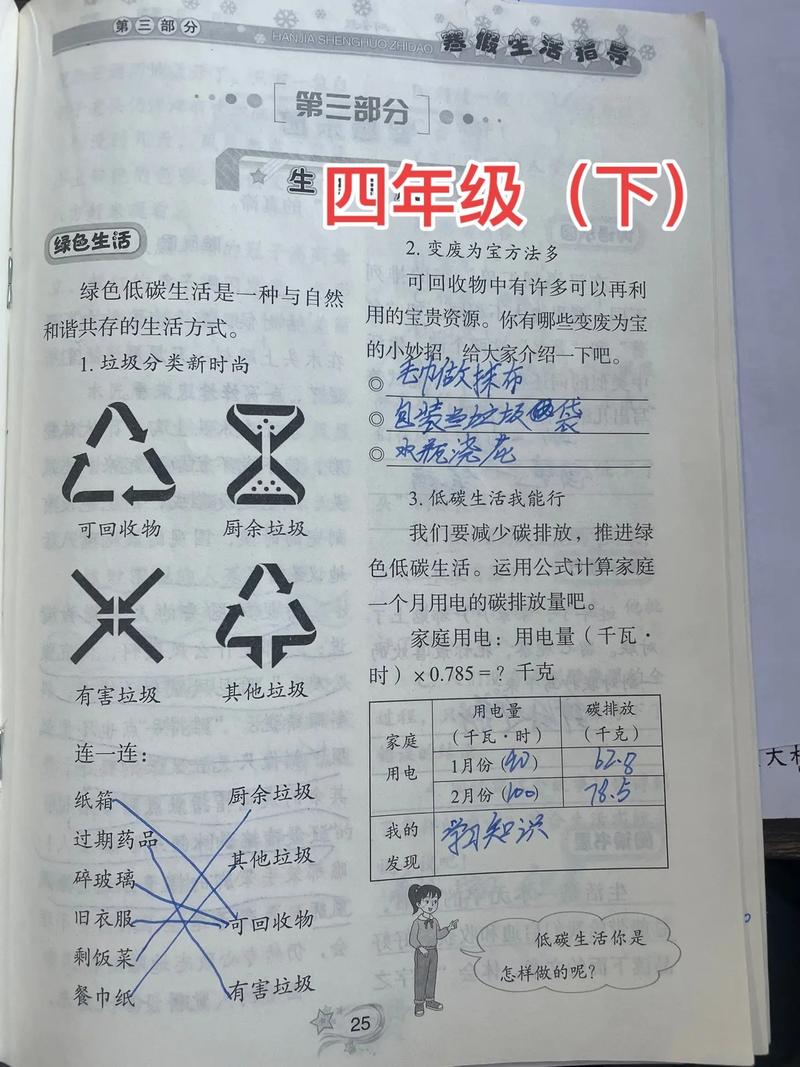 第三部分
HANJIA SHENGHUO ZHIDAO
寒假生活指导
第三部分
生
四年级（下）
绿色生活
绿色低碳生活是一种与自然
和谐共存的生活方式。
1. 垃圾分类新时尚
可回收物
厨余垃圾
有害垃圾
其他垃圾
连一连：
纸箱
厨余垃圾
过期药品
其他垃圾
碎玻璃
旧衣服
可回收物
剩饭菜
餐巾纸
有害垃圾
2. 变废为宝方法多
可回收物中有许多可以再利
用的宝贵资源。你有哪些变废为宝
的小妙招，给大家介绍一下吧。
◎ 毛巾做抹布
◎ 包装当垃圾袋
◎ 水瓶浇花
3. 低碳生活我能行
我们要减少碳排放，推进绿
色低碳生活。运用公式计算家庭
一个月用电的碳排放量吧。
家庭用电：用电量（千瓦·
时）×0.785=？千克
家庭
用电
用电量
（千瓦·时）
碳排放
（千克）
1月份（80）
62.8
2月份（100）
78.5
我的
发现
学习知识
低碳生活你是
怎样做的呢？
25